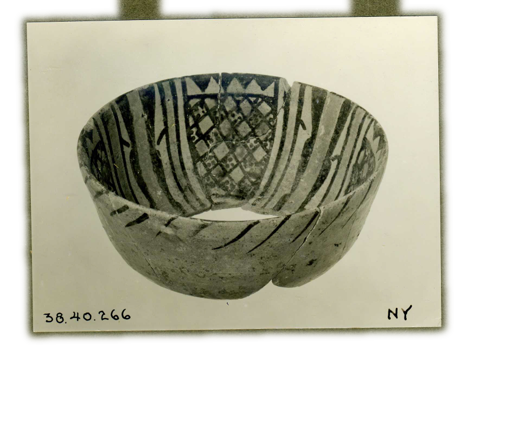 38.40.266
NY